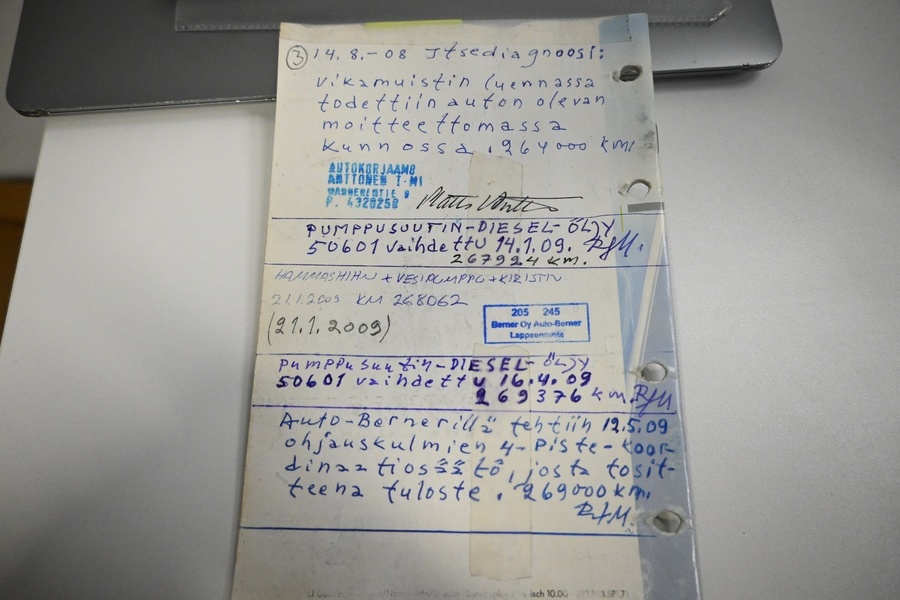 3 14.8.-08 Itsediagnoosi:
vikamuistin luennassa
todettiin auton olevan
moitteettomassa
kunnossa. 264000 km.
AUTOKORJAAMO
ANTTONEN T:MI
P. 4320258
PUMPPUSUUTIN-DIESEL-ÖLJY
50601 vaihdettu 14.1.09.
267924 km.
HAMMASHIHN + VESIPUMPPU + KIRISTIN
21.1.2009 KM 268062
(21.1.2009)
205 245
Berner Oy Auto-Berner
Lappeenranta
PUMPPUSUUTIN-DIESEL-ÖLJY
50601 vaihdettu 16.4.09
269376 km.
Auto-Bernerillä tehtiin 12.5.09
ohjauskulmien 4-Piste-koor-
dinaatiosäätö, josta tosit-
teena tuloste. 269000 km.